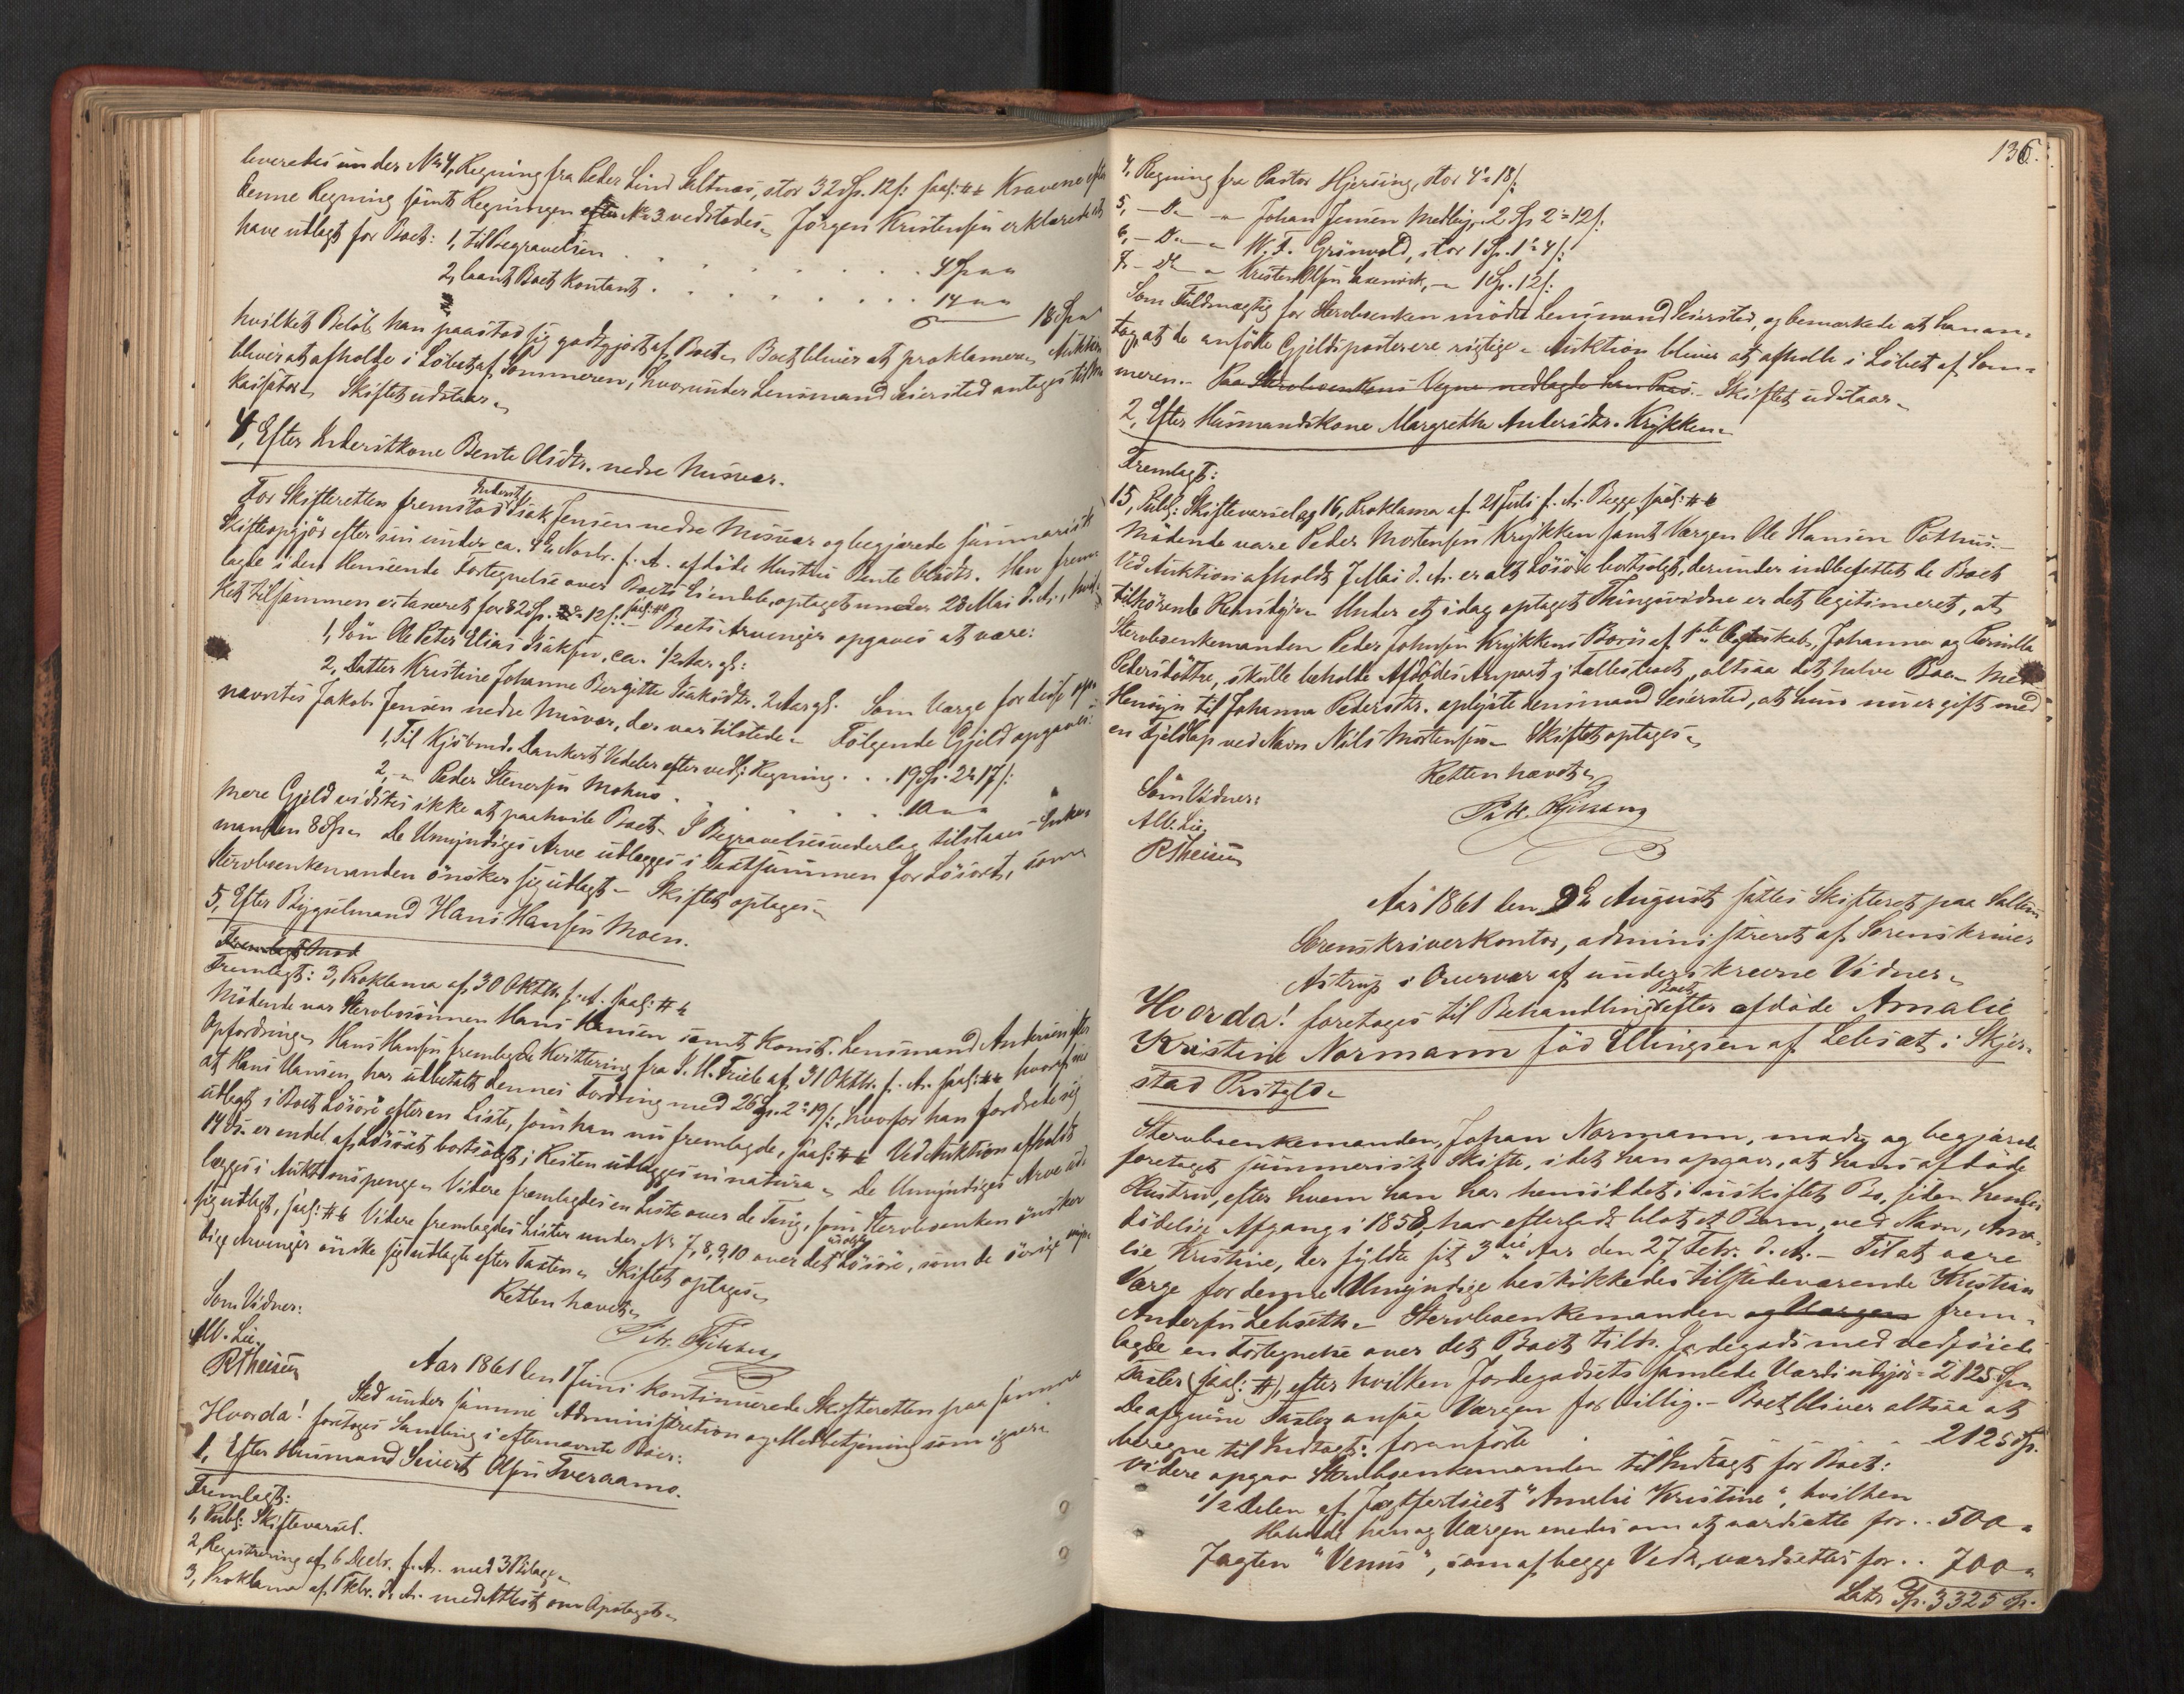 leveredes under No 4, Regning fra Peder Lind Saltnes, stor 32 Sp. 12 s: saal: Kravene efter
denne Regning samt Regningen efter No 3 vedstodes. Jørgen Kristensen erklærede at
have udlagt for Boet: 1, til Begravelsen . . . . . . . 4 Sp „ „
2, laant Boet kontant . . . . . . . 14 „ „
18 Sp „
hvilket Beløb han paastod sig godtgjort af Boet. Boet bliver at proklamere. Auktion
bliver at afholde i Løbet af Sommeren, hvorunder Lensmand Seiersted antages til In-
kassator. Skiftet udstaar.
4, Efter Inderstkone Bente Olsdtr. nedre Misvær.
For Skifteretten fremstod Inderst Isak Jensen nedre Misvær og begjærede summarisk
Skifteopgjør efter sin under ca. 4de Novbr. f. A. afdøde Hustru Bente Olsdtr. Han frem-
lagde i den Henseende Fortegnelse over Boets Eiendele, optaget under 28 Mai d. A., hvil-
ket tilsammen er taxeret for 82 Sp. 12 s: Boets Arvinger opgaves at være:
1, Søn Ole Peter Elias Isaksen, ca. 1/2 Aar gl:
2, Datter Kristine Johanne Bergitte Isaksdtr. 2 Aar gl. Som Værge for disse op-
nævntes Jakob Jensen nedre Misvær, der var tilstede. Følgende Gjeld opgaves:
1, Til Kjøbmd. Dankert Vedeler efter vedl: Regning . . . 19 Sp. 2 17 s:
2, „ Peder Stenersen Mohus . . . . . 10 „ „
Mere Gjeld vidstes ikke at paahvile Boet. I Begravelsesvederlag tilstaaes Enke-
manden 8 Sp. De Umyndiges Arve udlægges i Taxtsummen for Løsøret, som
Stervboenkemanden ønsker sig udlagt. Skiftet optages.
5, Efter Bygselmand Hans Hansen Moen.
Fremlagt:
Fremlagt: 3, Proklama af 30 Oktbr f. A. saal:
Mødende var Stervbosønnen Hans Hansen samt Konst. Lensmand Andersen efter
Opfordring. Hans Hansen fremlagde Kvittering fra J. H. Friele af 31 Oktbr. f. A. saal: hvoraf sees
at Hans Hansen har udbetalt dennes Fordring med 26 Sp. 2 19 s:, hvorfor han fordrede sig
udlagt i Boets Løsøre efter en Liste, som han nu fremlagde, saal: Ved Auktion afholdt
14 ds. er endel af Løsøret bortsolgt; Resten udlægges in natura. De Umyndiges Arve ud-
lægges i Auktionspenge. Videre fremlagdes en Liste over de Ting, som Stervboenken ønsker
sig udlagt, saal: Videre fremlagdes Lister under No 7, 8, 9, 10 over det usolgte Løsøre, som de øvrige myn-
dige Arvinger ønske sig udlagte efter Taxten. Skiftet optages.
Retten hævet.
Som Vidner:
Alb. Lie.
R Theisen
Aar 1861 den 1 Juni kontinuerede Skifteretten paa samme
Sted under samme Administration og Medbetjening som igaar.
Hvorda! foretoges Samling i efternævnte Boer:
1, Efter Husmand Sivert Olsen Tveraamo.
Fremlagt:
1, Publ: Skiftevarsel.
2, Registrering af 6 Decbr. f. A. med 3 Bilage.
3, Proklama af 1 Febr. d. A. med Attest om Opslaget.
136.
4, Regning fra Pastor Hjersing, stor 4 18 s:
5, — Do — „ Johan Jensen Medby, 2 Sp 2 12 s:
6, — Do — „ W. F. Grönvold, stor 1 Sp. 1 4 s:
7, — Do — „ Kristen Olsen Laxenvik, „ 1 Sp. 12 s:
Som Fuldmægtig for Stervboenken mødte Lensmand Seiersted, og bemærkede at han an-
tog, at de anførte Gjeldsposter ere rigtige. Auktion bliver at afholde i Løbet af Som-
meren. Paa Stervboenkens Vegne nedlagde han Paas. Skiftet udstaar.
2, Efter Husmandskone Margrethe Andersdtr. Krykken.
Fremlagt:
15, Publ: Skiftevarsel og 16, Proklama af 21 Juli f. A. Begge saal:
Mødende vare Peder Mortensen Krykken samt Værgen Ole Hansen Pothus.
Ved Auktion afholdt 7 Mai d. A. er alt Løsøre bortsolgt, derunder indbefattet de Boet
tilhørende Rensdyr. Under et idag optaget Thingsvidne er det legitimeret, at
Stervboenkemanden Peder Johnsen Krykkens Børn af 1ste Ægteskab, Johanna og Pernilla
Pedersdøttre, skulle beholde Afdødes Anpart i Fællesboet, altsaa det halve Bo. Med
Hensyn til Johanna Pedersdtr. oplyste Lensmand Seiersted, at hun nu er gift med
en Fjeldlap ved Navn Nils Mortensen. Skiftet optages.
Retten hævet.
Som Vidner:
Alb. Lie.
R Theisen
Aar 1861 den 9de August sattes Skifteret paa Salten
Sorenskriverkontor, administreret af Sorenskriver
Astrup i Overvær af underskrevne Vidner.
Hvorda! foretoges til Behandling Boet efter afdøde Amalie
Kristine Normann fød Ellingsen af Lebsæt i Skjer-
stad Prstgld.
Stervboenkemanden, Johan Normann, mødte og begjærede
foretaget summarisk Skifte, idet han opgav, at hans afdøde
Hustru, efter hvem han har hensiddet i uskiftet Bo, siden hendes
dødelige Afgang i 1858, har efterladt blot et Barn, ved Navn, Ama-
lie Kristine, der fyldte sit 3die Aar den 27 Febr. d. A. — Til at være
Værge for denne Umyndige beskikkedes tilstedeværende Kristian
Andersen Lebsæth. Stervboenkemanden og Værgen frem-
lagde en Fortegnelse over det Boet tilh. Jordegods med vedføiede
Taxter (saal:), efter hvilken Jordegodsets samlede Værdi udgjør 2125 Sp.
De afgivne Taxter ansaa Værgen for billig. — Boet bliver altsaa at
beregne til Indtægt: foranførte . . . 2125 Sp.
Videre opgav Stervboenkemanden til Indtægt for Boet:
1/2 Delen af Jagtfartøiet "Amalie Kristine", hvilken
Halvdel han og Værgen enedes om at værdsætte for . . 500 „
Jagten "Venus", som af begge Vedk. værdsættes for . . 700 „
Lats Sp. 3325 Sp.